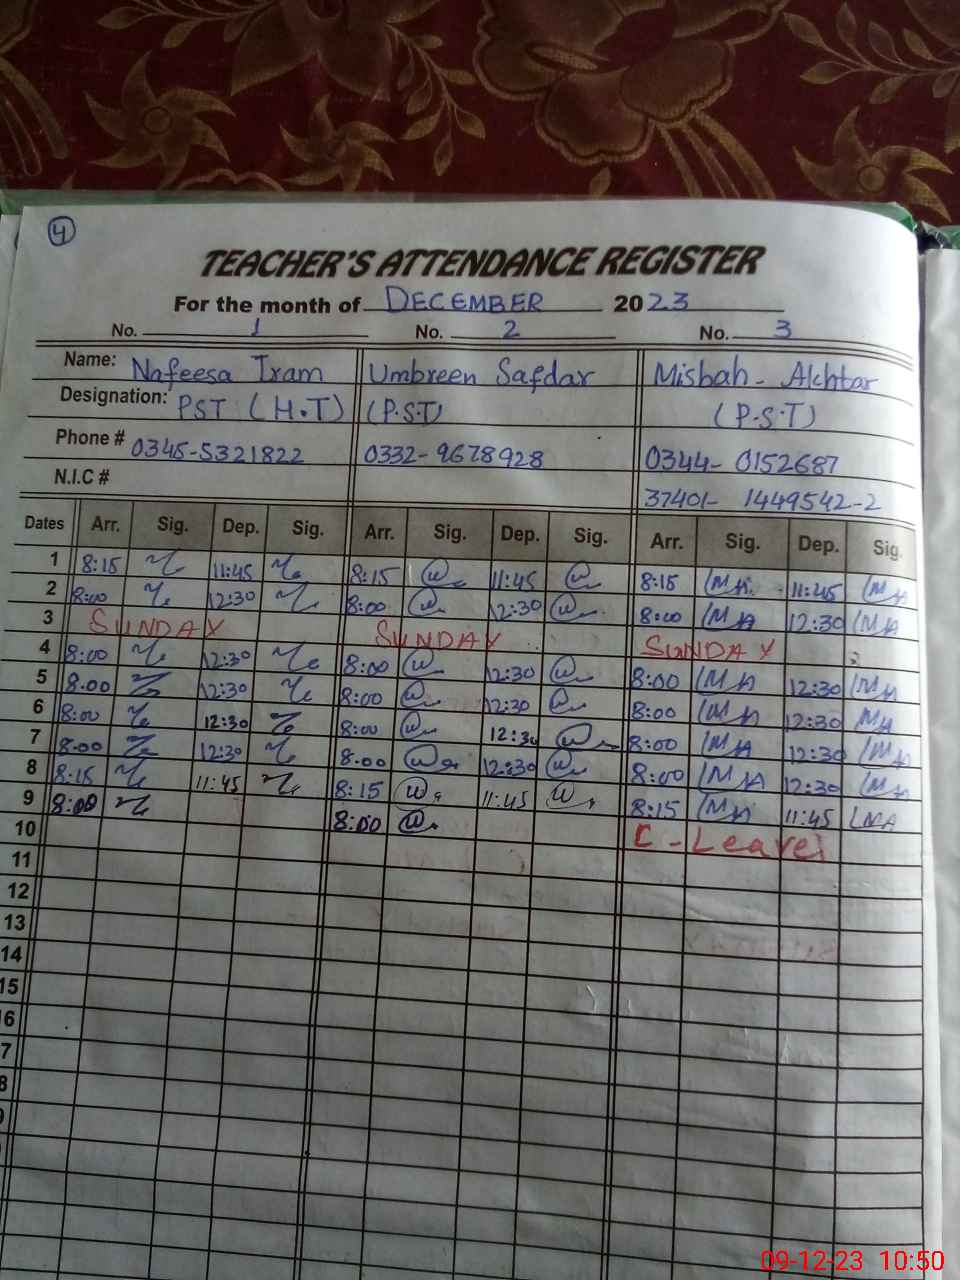 4
TEACHER'S ATTENDANCE REGISTER
For the month of DECEMBER 2023
No. 1 No. 2 No. 3
Name: Nafeesa Iram Umbreen Safdar Misbah - Akhtar
Designation: PST (H.T) (P.S.T) (P.S.T)
Phone # 0345-5321822 0332-9678928 0344-0152687
N.I.C # 37401-1449542-2
Dates Arr. Sig. Dep. Sig. Arr. Sig. Dep. Sig. Arr. Sig. Dep. Sig.
1 8:15 11:45 8:15 11:45 8:15 MA 11:45 MA
2 8:00 12:30 8:00 12:30 8:00 MA 12:30 MA
3 SUNDAY SUNDAY SUNDAY
4 8:00 12:30 8:00 12:30 8:00 MA 12:30 MA
5 8.00 12:30 8:00 12:30 8:00 MA 12:30 MA
6 8:00 12:30 8:00 12:30 8:00 MA 12:30 MA
7 8.00 12:30 8.00 12:30 8:00 MA 12:30 MA
8 8:15 11:45 8:15 11:45 8:15 MA 11:45 MA
9 8:00 8:00 C-Leave
10
11
12
13
14
15
16
09-12-23 10:50